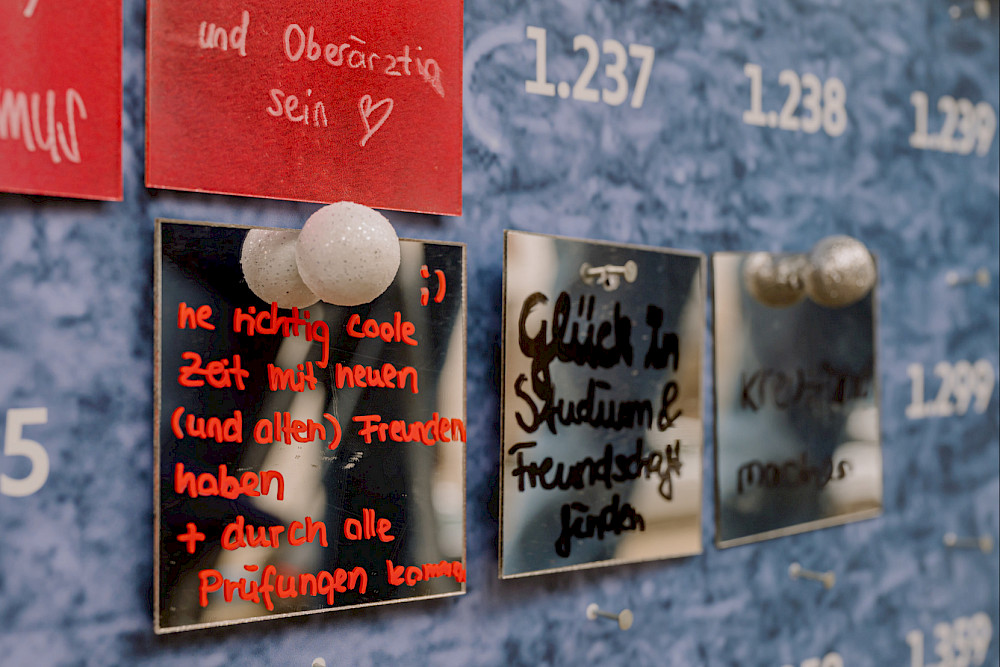 mus
und Oberärztin
sein ♡
1.237
1.238
1.239
;)
ne richtig coole
Zeit mit neuen
(und alten) Freunden
haben
+ durch alle
Prüfungen kommen
Glück in
Studium &
Freundschaft
finden
machen
5
1.299
1.359